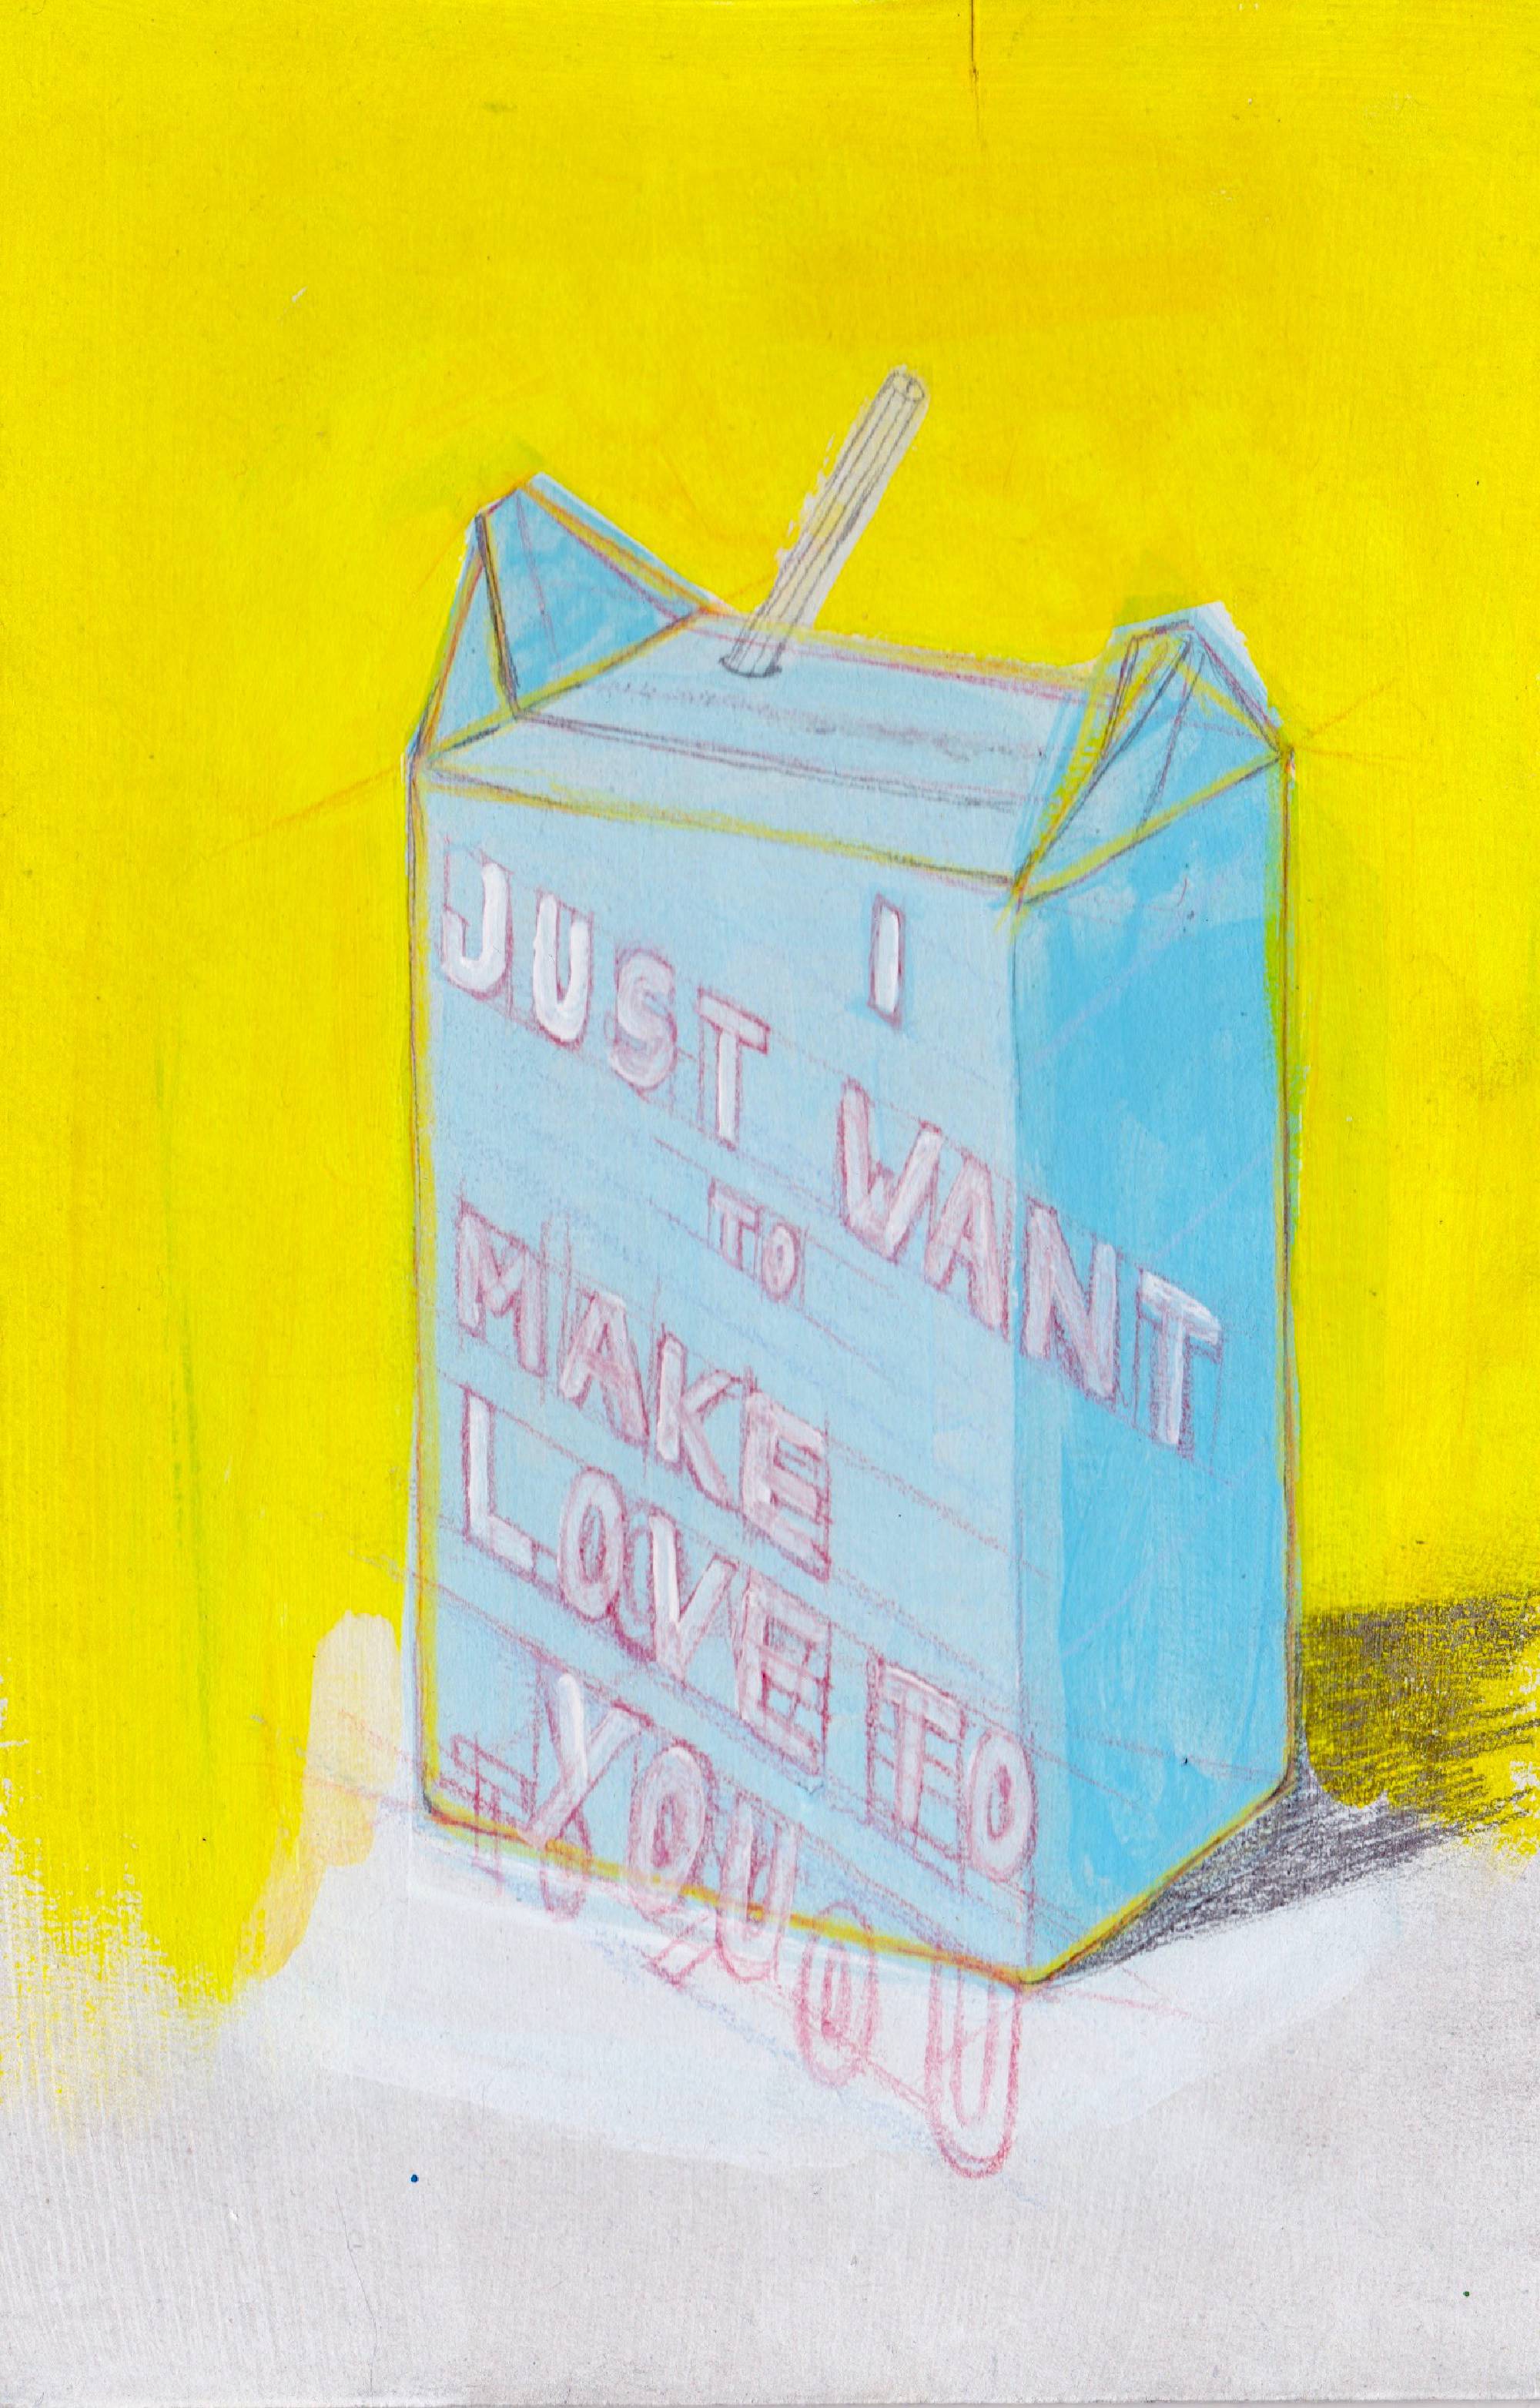 I
JUST WANT
TO
MAKE
LOVE TO
YOU
TO YOU